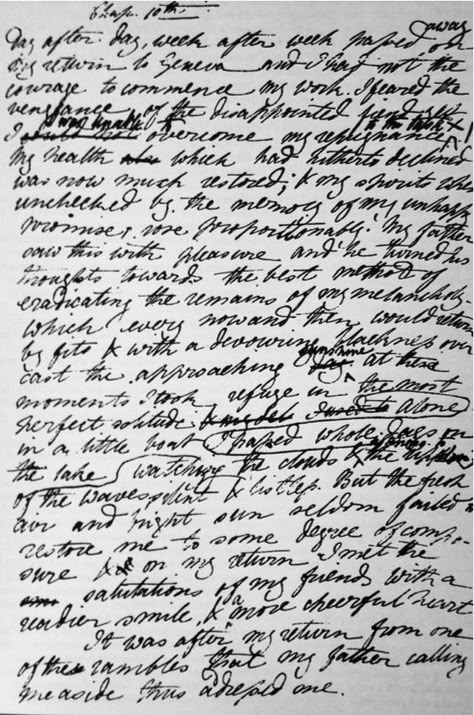 Chap. 10th
Day after day, week after week passed away on
my return to Geneva and I had not the
courage to commence my work. I feared the
vengeance of the disappointed fiend yet
I was unable to overcome my repugnance to the task X
my health which had hitherto declined
was now much restored; & my spirits when
unchecked by the memory of my unhappy
promise, rose proportionably. My father
saw this with pleasure and he turned his
thoughts towards the best method of
eradicating the remains of my melancholy
which every now and then would return
by fits & with a devouring blackness over
cast the approaching sunshine at these
moments I took refuge in the most
perfect solitude alone
in a little boat I passed whole days on
the lake watching the clouds & the
of the waves silent & listless. But the fresh
air and bright sun seldom failed to
restore me to some degree of compo-
sure & on my return I met the
salutations of my friends with a
readier smile, & a more cheerful heart
It was after my return from one
of these rambles that my father calling
me aside thus adressed me.